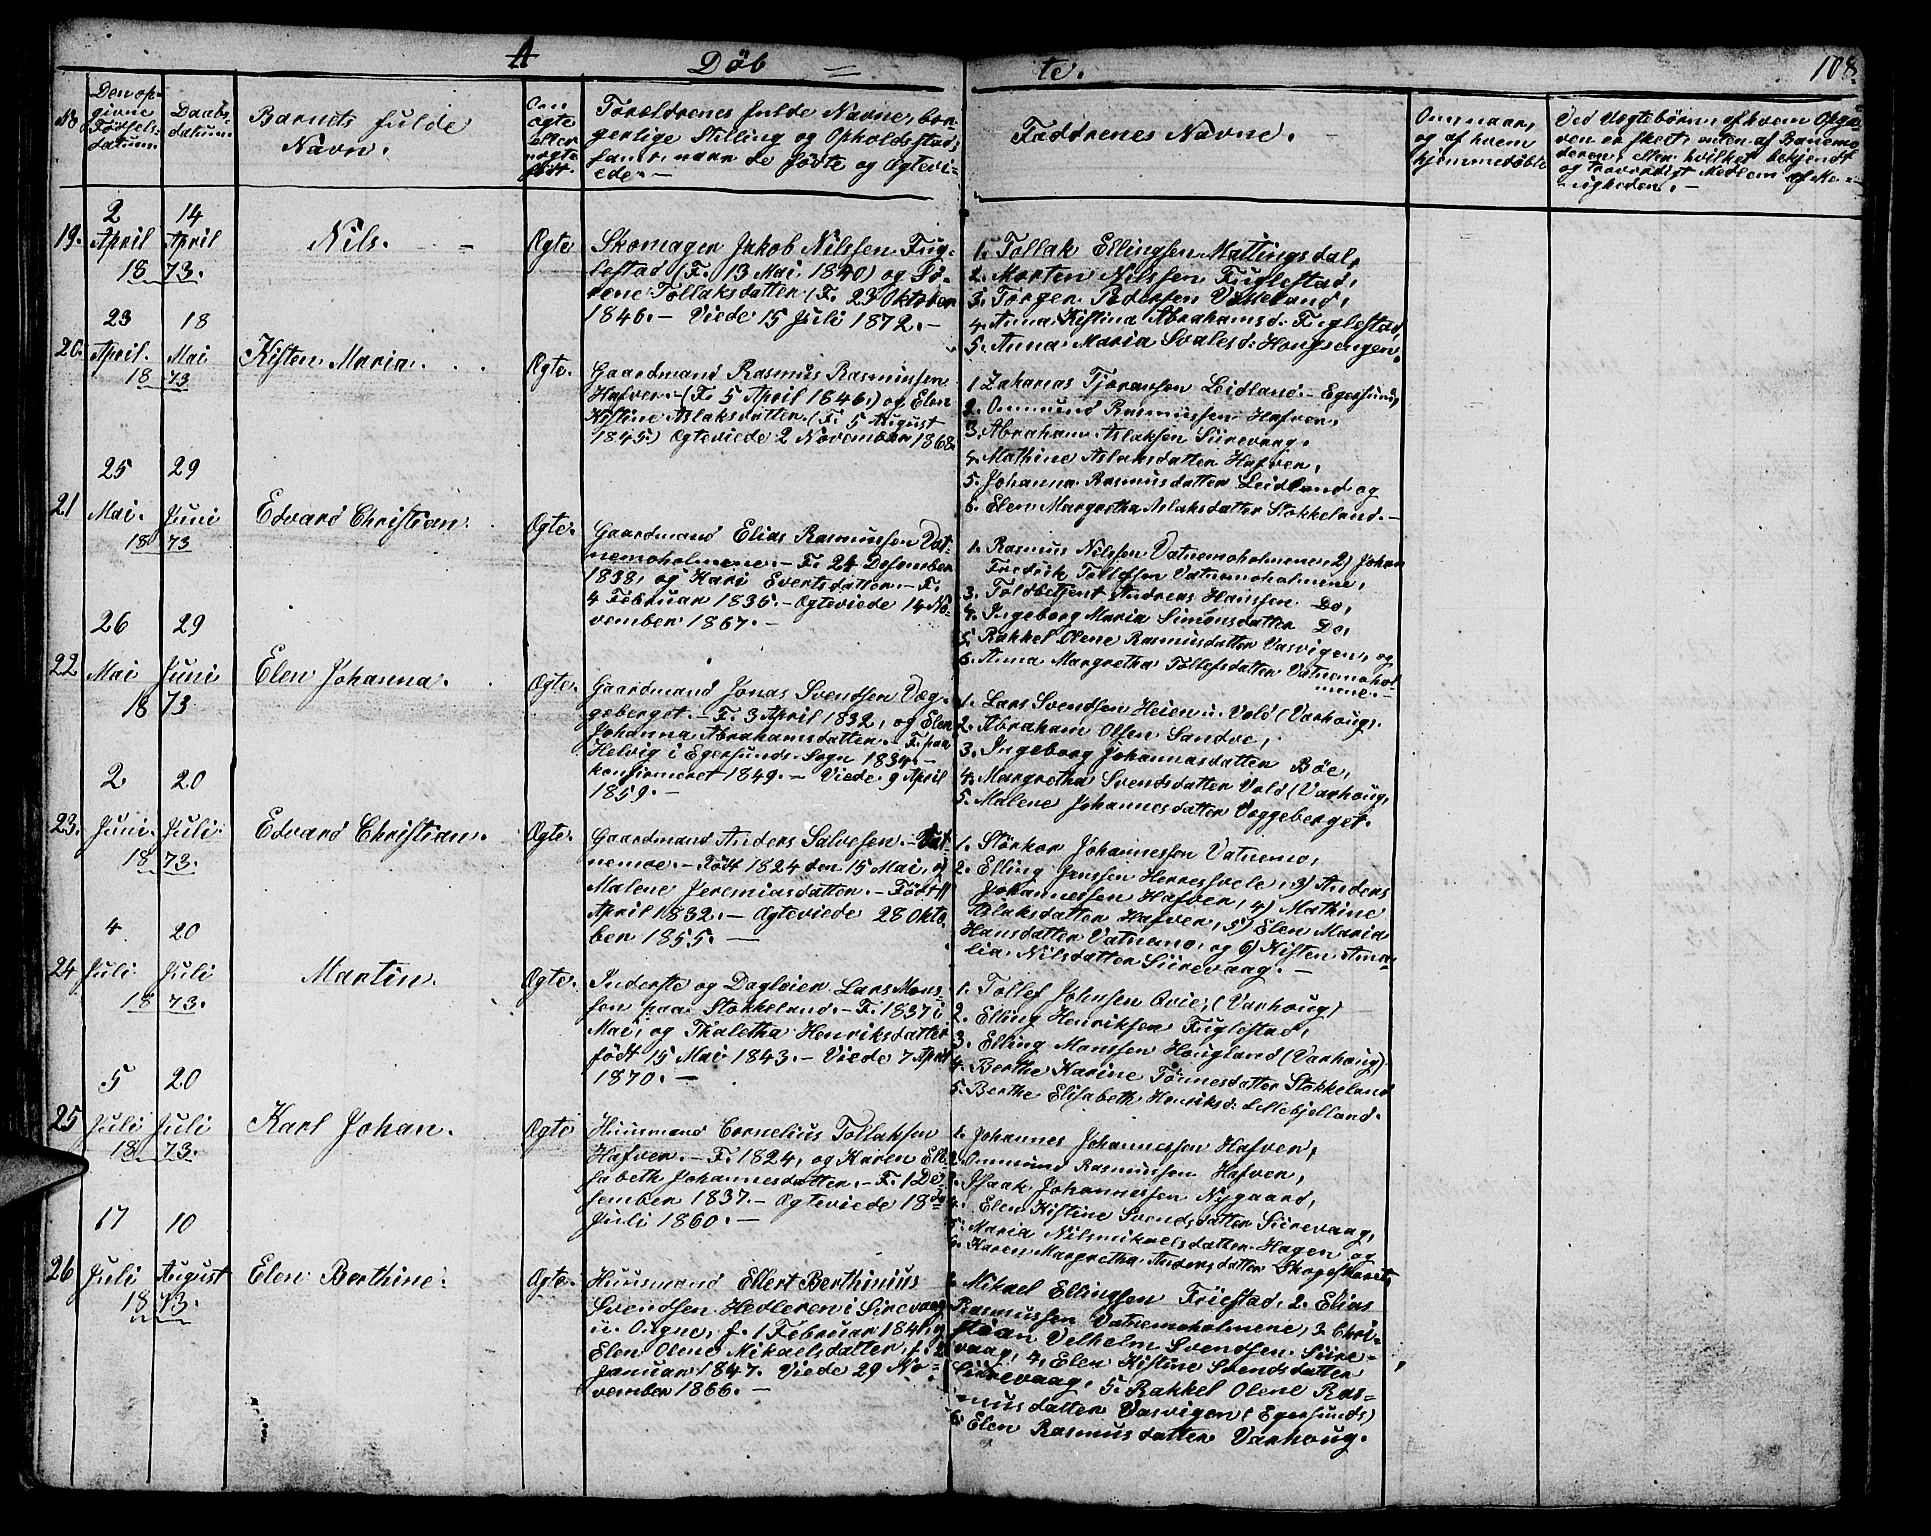 A
Döb = te.
108.
No
Den op-
givne
Födsels-
datum.
Daabs-
datum.
Barnets fulde
Navn.
Om
ægte
eller
uægte
födt.
Forældrenes fulde Navne, bor-
gerlige Stilling og Opholdssted,
samt, naar de födte og Ægtevi-
ede. —
Faddrenes Navne.
Om, naar,
og af hvem
hjemmedöbte
Ved Uegtebörn, af hvem Opga-
ven er skeet, enten af Barnemo-
deren, eller hvilket bekjendt
og troværdigt Medlem af Me-
nigheden. —
19.
2 April
14 April
1873.
Nils.
Ægte
Skomager Jakob Nilssen Fug-
lestad (F. 13 Mai 1840) og Sö-
rene Tollaksdatter (F. 23 Oktober
1846. — Viede 15 Juli 1872. —
1. Tollak Ellingsen Mattingsdal,
2. Morten Nilssen Fuglestad,
3. Torger Pedersen
4. Anna Kistina Abrahamsd. Fuglestad,
5. Anna Maria Svalesd: Hougsengen.
20.
23 April.
18 Mai
1873
Kisten Maria.
Ægte.
Gaardmand Rasmus Rasmussen
Hafver. — (F. 5 April 1846.) og Elen
Kistine Aslaksdatter. (F. 5 August
1845.) Ægteviede 2 November 1868.
1. Zaharias Tjoransen Leidland. — Egersund,
2. Ommund Rasmussen Hafver,
3. Abraham Aslaksen Siirevaag,
4. Mathine Aslaksdatter Hafver,
5. Johanna Rasmusdatter Leidland og
6. Elen Margretha Aslaksdatter Stokkeland. —
21
25 Mai.
29 Juni
1873
Edvard Christian.
Ægte.
Gaardmand Elias Rasmussen Vat-
nemoholmene. — F. 24 Desember
1838, og Kari Evertsdatter. — F.
4 Februar 1835. — Ægteviede 14 No-
vember 1867. —
1. Rasmus Nilssen Vatnemoholmene, 2) Johan
Fredrik Tollefsen Vatnemoholmene,
3. Toldbetjent Andreas Hanssen Do,
4. Ingeborg Maria Simonsdatter Do,
5. Rakkel Olene Rasmusdatter Vasvigen, og
6. Anna Margretha Tollefsdatter Vatnemohol-
mene. —
22
26 Mai
29 Juni
1873
Elen Johanna.
Ægte.
Gaardmand Jonas Svendsen Væg-
geberget. — F. 3 April 1832, og Elen
Johanna Abrahamsdatter. — F. paa
Helvig i Egersunds Sogn 1834. —
konfirmeret 1849. — Viede 9 April
1859. —
1. Lars Svendsen Heien u. Vold (Varhoug,
2. Abraham Olsen Sandve,
3. Ingeborg Johannasdatter Böe,
4. Margretha Svendsdatter Vold (Varhoug,
5. Malene Johannesdatter Veggeberget.
23.
2 Juni.
20 Juli.
1873.
Edvard Christian.
Ægte.
Gaardmand Anders Salvesen. — Vat-
nemoe. — Födt 1824 den 15 Mai, og
Malene Jeremiasdatter. — Födt 11
April 1832. — Ægteviede 28 Okto.
ber 1855. —
1. Störkor Johannessen Vatnemo,
2. Elling Janssen Herresvele, 3) Anders
Johannessen Hafver, 4) Mathine
Aslaksdatter Hafver, 5) Elen Maria
Hansdatter Vatnemo, og 6) Kisten Ama-
lia Nilsdatter Siirevaag. —
24
4 Juli
20 Juli
1873.
Martin.
Ægte.
Inderste og Dagleier Lars Mons-
sen paa Stokkeland. — F. 1837 i
Mai, og Thaletha Henriksdatter
födt 15 Mai 1843. — Viede 7 April
1870. —
1. Tollef Johnsen Qvie, (Varhoug)
2. Elling Henriksen Fuglestad,
3. Elling Monssen Hougland (Varhoug)
4. Berthe Karine Tönnesdatter Stokkeland
5. Berthe Elisabeth Henriksd: Lillebjelland.
25
5 Juli
20 Juli
1873.
Karl Johan.
Ægte
Huusmand Cornelius Tollaksen
Hafver. — F. 1824, og Karen Eli-
sabeth Johannesdatter. — F. 1 De-
sember 1837. — Ægteviede 18de
Juli 1860. —
1. Johannes Johannessen Hafver,
2. Ommund Rasmussen Hafver,
3. Isaak Johannessen Nygaard,
4. Elen Kistine Svendsdatter Siirevaag,
5. Maria Nilsmikaelsdatter Hagen og
6. Karen Margretha Andersdatter
26
17 Juli
10 August
1873.
Elen Berthine.
Ægte.
Huusmand Ellert Berthinius
Svendsen Hedleren i Sirevaag
u. Ougne, f. 1 Februar 1841, og
Elen Olene Mikaelsdatter, f. 2
Januar 1847. Viede 29 No-
vember 1866. —
1. Mikael Ellingsen Friestad, 2. Elias
Rasmussen Vatnemoholmene, 3. Chri-
stian Velhelm Svendsen Siire-
vaag, 4. Elen Kistine Svendsdatter
Siirevaag, 5. Rakkel Olene Ras-
musdatter Vasvigen (Egersunds)
6. Elen Rasmusdatter Varhoug.